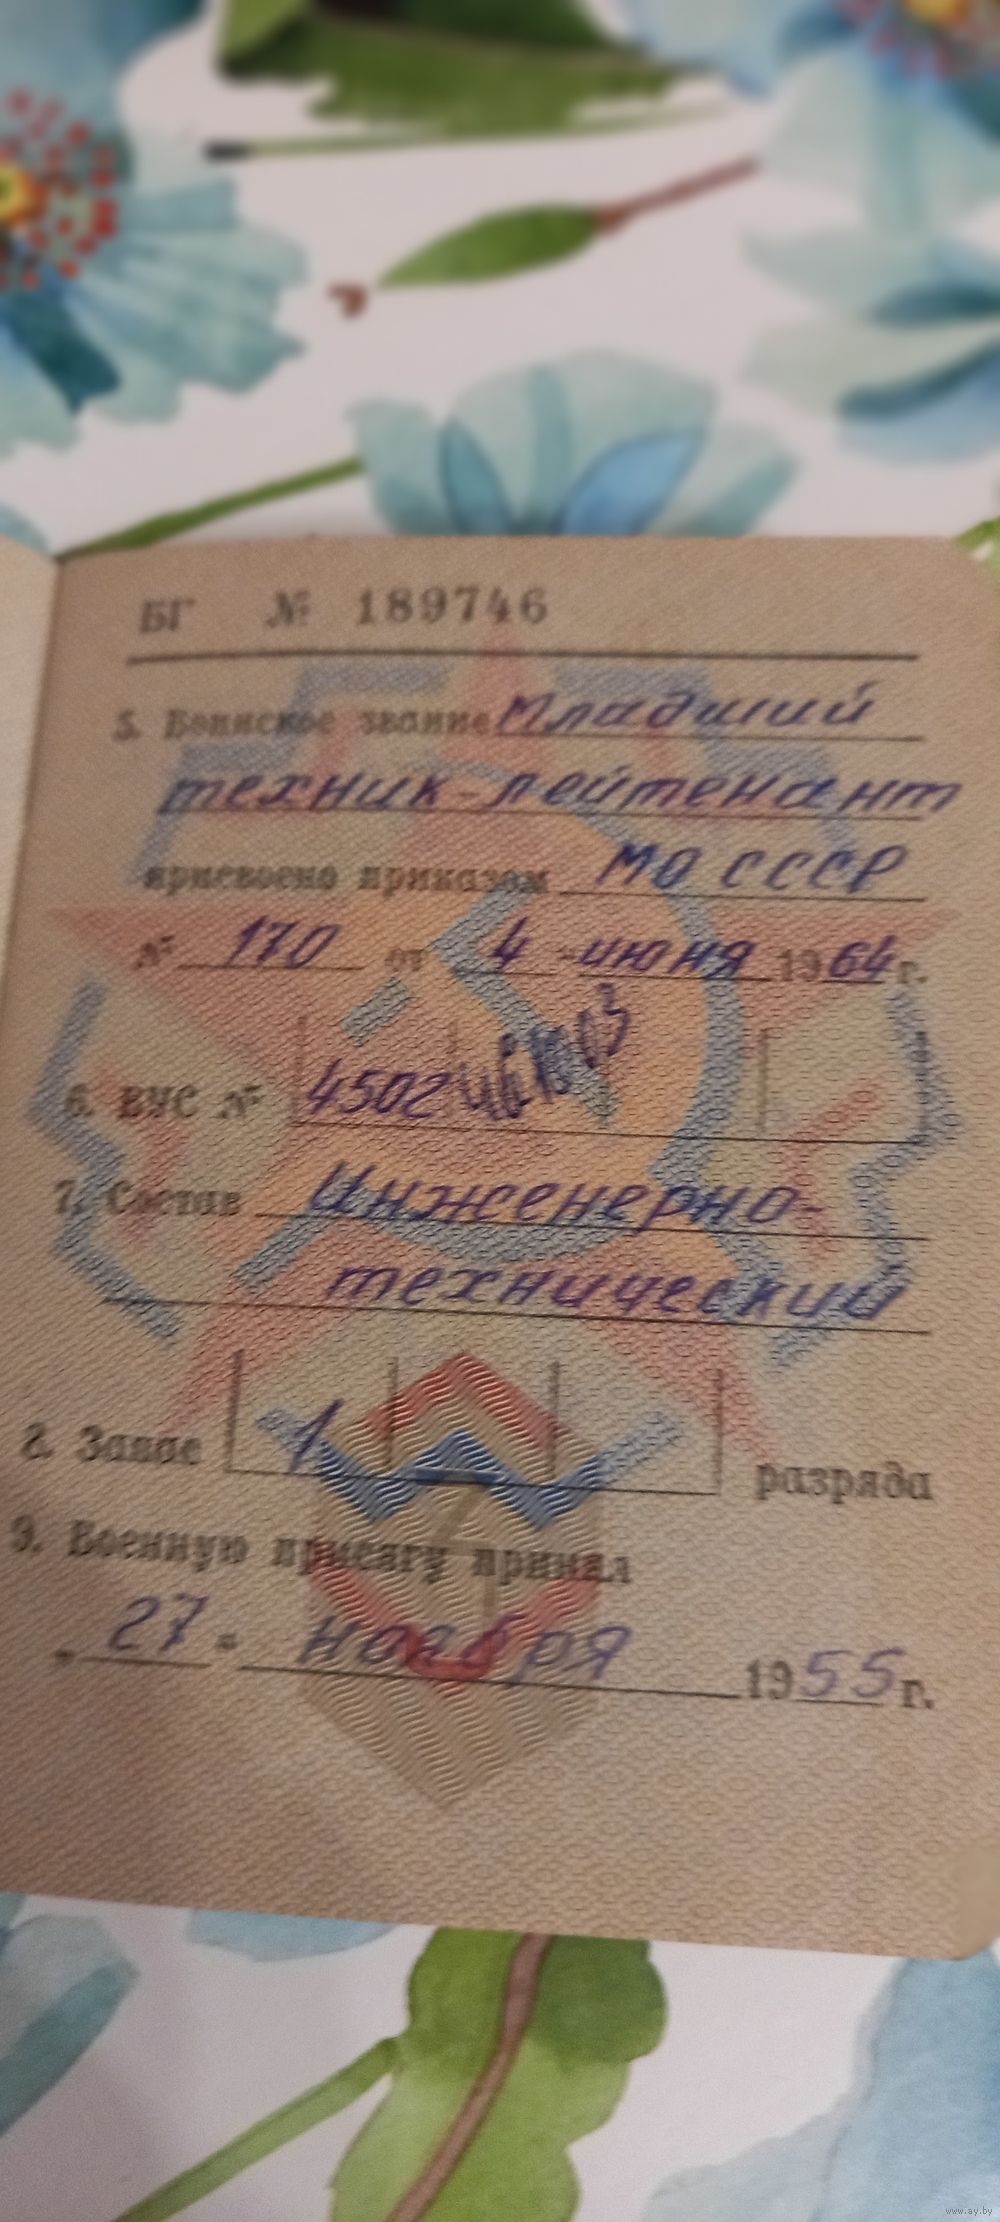 БГ № 189746
5. Воинское звание Младший
техник-лейтенант
присвоено приказом МО СССР
№ 170 от "4" июня 1964 г.
6. ВУС № 4502
7. Состав Инженерно-
технический
8. Запас 1 разряда
9. Военную присягу принял
"27" ноября 1955 г.
www.ay.by